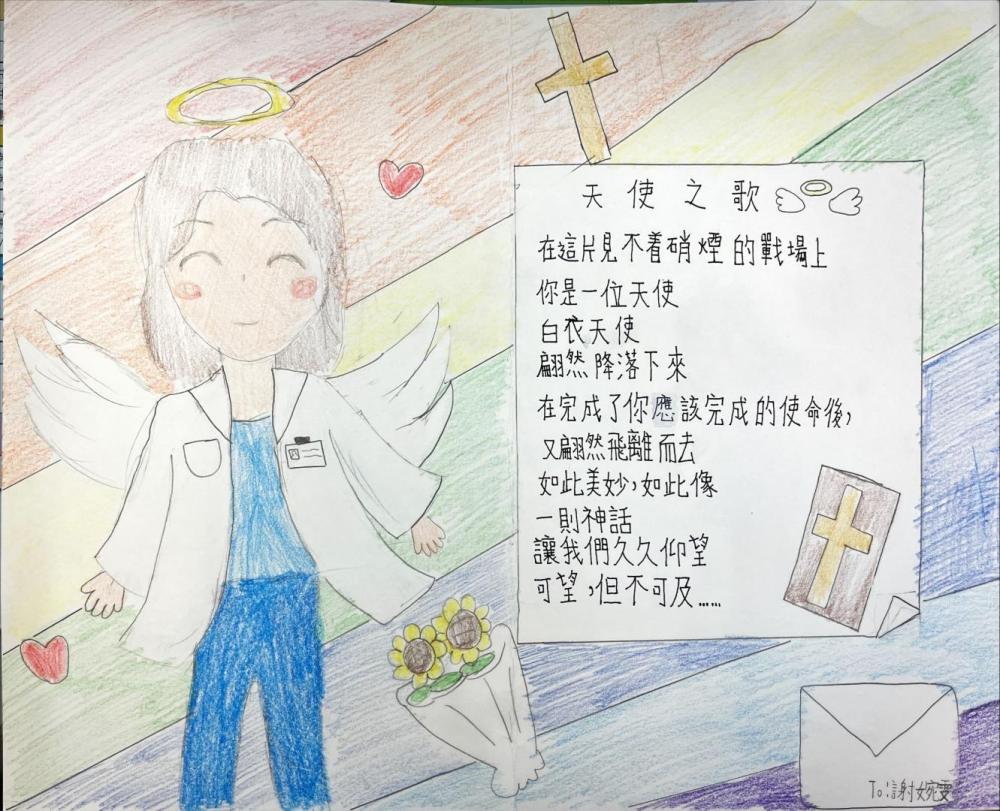 天使之歌
在這片見不着硝煙的戰場上
你是一位天使
白衣天使
翩然降落下來
在完成了你應該完成的使命後,
又翩然飛離而去
如此美妙,如此像
一則神話
讓我們久久仰望
可望,但不可及……
To:謝婉雯